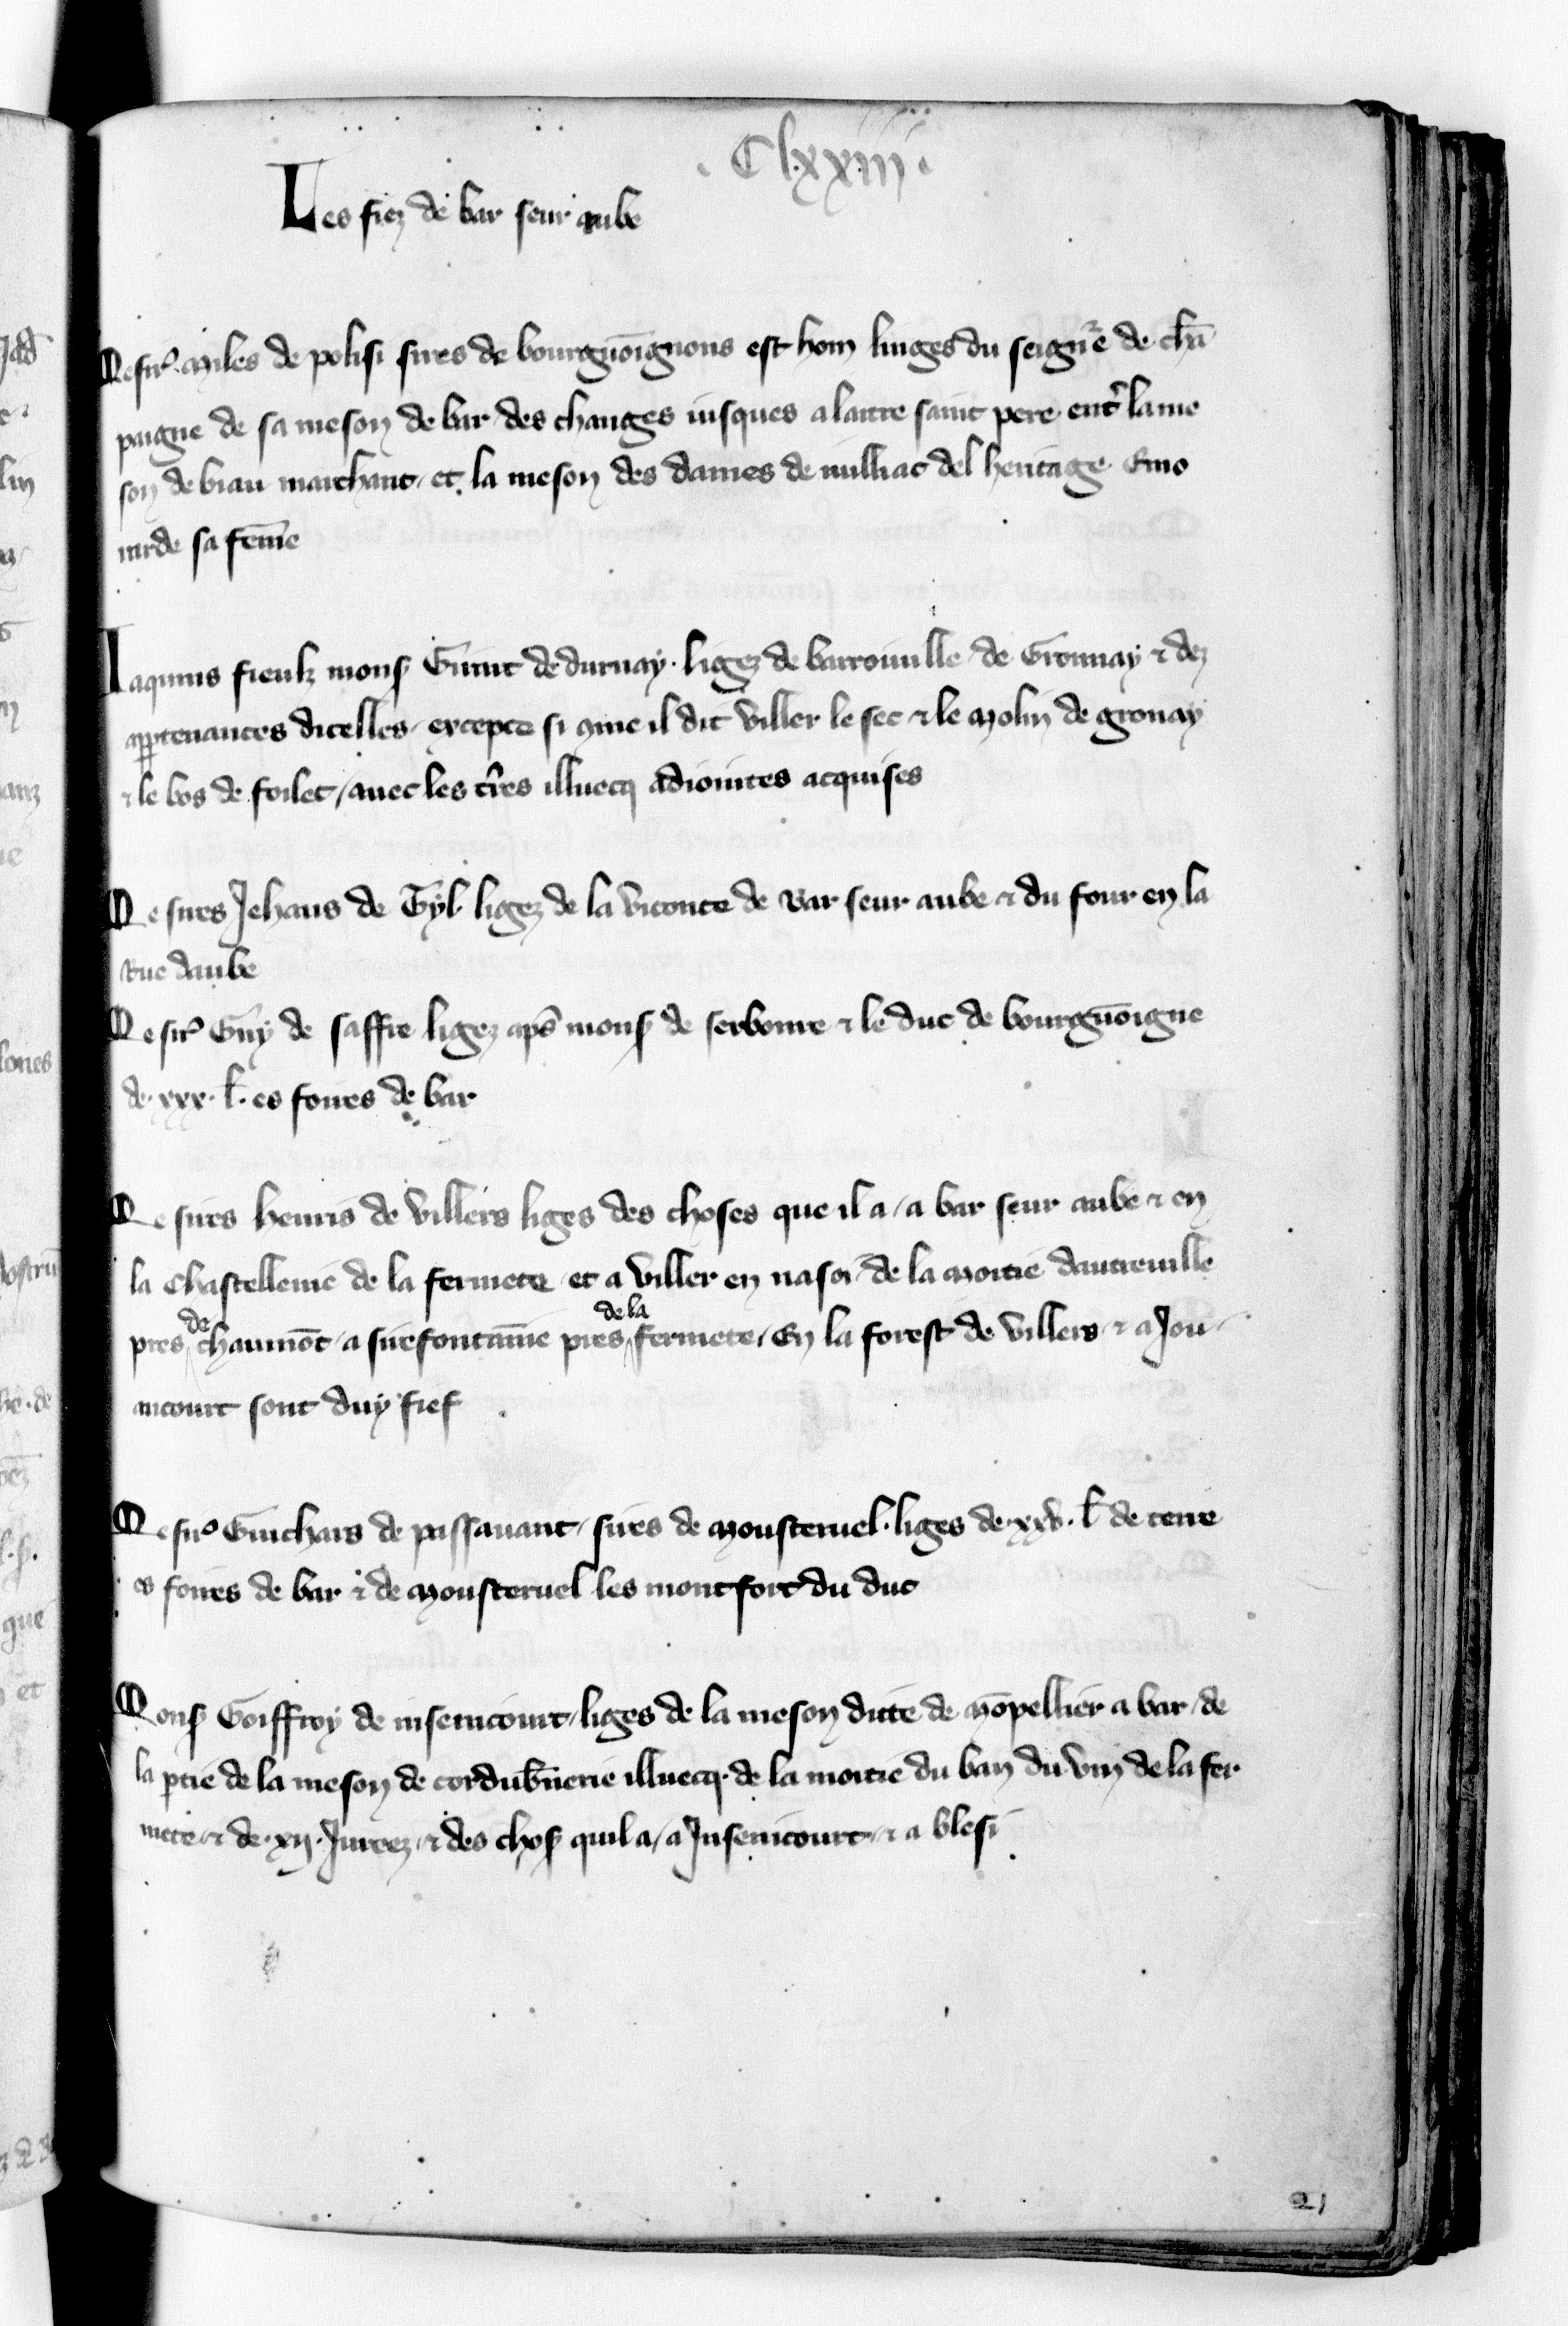 . Clxxiij .
Les fiez de bar seur aube
Mesir᷒. Miles de polisi sires de bourguōignons est hom linges du seignr̄e de chā
paigne de sa meson de bar des changes iusques a laitre saint pere entr̄ la me
son de biau marchant / et la meson des dames de iuilliac del heritage Emo
nirde sa fem̄e
Iaquins fieulz mons Girart de durnay . ligez de barrouille de Gronnay ⁊ dez
appartenances dicelles / excepte si 9me il dit viller le sec ⁊ le molin de gronay
⁊ le bos de foilet / auec les tr̄es illuecq adiointes acquises
Me sires Jehans de Tyl . ligez de la viconte de Bar seur aube ⁊ du four en la
Rue daube
Mesir᷒ Guy de saffre ligez aps̄ mons de serbonne ⁊ le duc de bourguōigne
de . xxx . l̄ . es foires de bar
Me sires henris de villers liges des choses que il a / a bar seur aube ⁊ en
la Chastellenie de la fermete et a viller en nasoi de la moitie dautreuille
pres de chaumōt / a sirefontain̄e pres de la fermete / En la forest de villers ⁊ a Jon
ancourt sont duy fief
Mesir᷒ Guichars de passauant / sires de mousteruel . liges de . xxv . l̄ de terre
es foires de bar ⁊ de mousteruel les montfort du duc
Mons Goiffroy de insenicourt / liges de la meson dite de mōpellier a bar / de
la ptie de la meson de cordub̄nerie illuecq . de la moitie du ban du vin de la fer
mete ⁊ de . xij . Jurez / ⁊ des chos quil a / a Insenicourt ⁊ a blesi